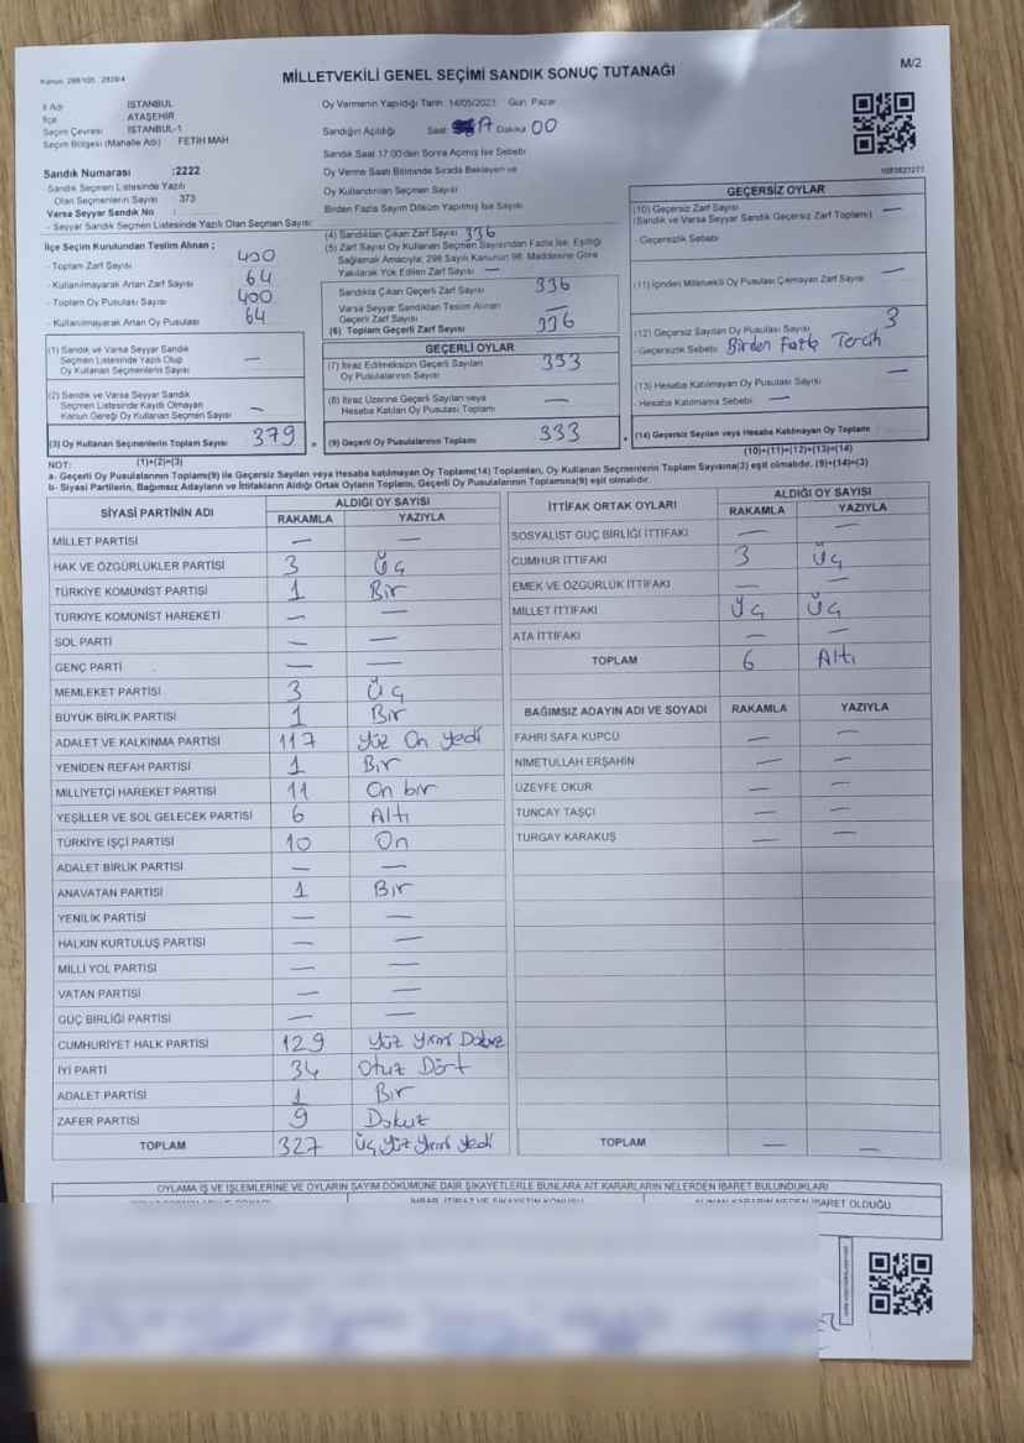 Kanun: 298/105, 2839/4
MİLLETVEKİLİ GENEL SEÇİMİ SANDIK SONUÇ TUTANAĞI
M/2
İl Adı İSTANBUL
İlçe ATAŞEHİR
Seçim Çevresi İSTANBUL-1
Seçim Bölgesi (Mahalle Adı) FETİH MAH
Sandık Numarası :2222
Sandık Seçmen Listesinde Yazılı
Olan Seçmenlerin Sayısı 373
Varsa Seyyar Sandık No :
- Seyyar Sandık Seçmen Listesinde Yazılı Olan Seçmen Sayısı:
Oy Vermenin Yapıldığı Tarih: 14/05/2023 Gün: Pazar
Sandığın Açıldığı Saat: 17 Dakika 00
Sandık Saat 17:00'den Sonra Açılmış İse Sebebi:
Oy Verme Saati Bitiminde Sırada Bekleyen ve
Oy Kullandırılan Seçmen Sayısı
Birden Fazla Sayım Döküm Yapılmış İse Sayısı
İlçe Seçim Kurulundan Teslim Alınan ;
- Toplam Zarf Sayısı 400
- Kullanılmayarak Artan Zarf Sayısı 64
- Toplam Oy Pusulası Sayısı 400
- Kullanılmayarak Artan Oy Pusulası 64
(1) Sandık ve Varsa Seyyar Sandık
Seçmen Listesinde Yazılı Olup
Oy Kullanan Seçmenlerin Sayısı —
(2) Sandık ve Varsa Seyyar Sandık
Seçmen Listesinde Kayıtlı Olmayan
Kanun Gereği Oy Kullanan Seçmen Sayısı —
(3) Oy Kullanan Seçmenlerin Toplam Sayısı 379
(1)+(2)=(3)
(4) Sandıktan Çıkan Zarf Sayısı 336
(5) Zarf Sayısı Oy Kullanan Seçmen Sayısından Fazla İse, Eşitliği
Sağlamak Amacıyla; 298 Sayılı Kanunun 98. Maddesine Göre
Yakılarak Yok Edilen Zarf Sayısı —
Sandıkta Çıkan Geçerli Zarf Sayısı 336
Varsa Seyyar Sandıktan Teslim Alınan
Geçerli Zarf Sayısı —
(6) Toplam Geçerli Zarf Sayısı 336
GEÇERLİ OYLAR
(7) İtiraz Edilmeksizin Geçerli Sayılan
Oy Pusulalarının Sayısı 333
(8) İtiraz Üzerine Geçerli Sayılan veya
Hesaba Katılan Oy Pusulası Toplamı —
(9) Geçerli Oy Pusulalarının Toplamı 333
GEÇERSİZ OYLAR
(10) Geçersiz Zarf Sayısı
(Sandık ve Varsa Seyyar Sandık Geçersiz Zarf Toplamı) —
- Geçersizlik Sebebi
(11) İçinden Milletvekili Oy Pusulası Çıkmayan Zarf Sayısı —
(12) Geçersiz Sayılan Oy Pusulası Sayısı 3
- Geçersizlik Sebebi: Birden Fazla Tercih
(13) Hesaba Katılmayan Oy Pusulası Sayısı —
- Hesaba Katılmama Sebebi: —
(14) Geçersiz Sayılan veya Hesaba Katılmayan Oy Toplamı
(10)+(11)+(12)+(13)=(14)
NOT:
a- Geçerli Oy Pusulalarının Toplamı(9) ile Geçersiz Sayılan veya Hesaba katılmayan Oy Toplamı(14) Toplamları, Oy Kullanan Seçmenlerin Toplam Sayısına(3) eşit olmalıdır. (9)+(14)=(3)
b- Siyasi Partilerin, Bağımsız Adayların ve İttifakların Aldığı Ortak Oyların Toplamı, Geçerli Oy Pusulalarının Toplamına(9) eşit olmalıdır.
SİYASİ PARTİNİN ADI ALDIĞI OY SAYISI
RAKAMLA YAZIYLA
MİLLET PARTİSİ — —
HAK VE ÖZGÜRLÜKLER PARTİSİ 3 Üç
TÜRKİYE KOMÜNİST PARTİSİ 1 Bir
TÜRKİYE KOMÜNİST HAREKETİ — —
SOL PARTİ — —
GENÇ PARTİ — —
MEMLEKET PARTİSİ 3 Üç
BÜYÜK BİRLİK PARTİSİ 1 Bir
ADALET VE KALKINMA PARTİSİ 117 Yüz On yedi
YENİDEN REFAH PARTİSİ 1 Bir
MİLLİYETÇİ HAREKET PARTİSİ 11 On bir
YEŞİLLER VE SOL GELECEK PARTİSİ 6 Altı
TÜRKİYE İŞÇİ PARTİSİ 10 On
ADALET BİRLİK PARTİSİ — —
ANAVATAN PARTİSİ 1 Bir
YENİLİK PARTİSİ — —
HALKIN KURTULUŞ PARTİSİ — —
MİLLİ YOL PARTİSİ — —
VATAN PARTİSİ — —
GÜÇ BİRLİĞİ PARTİSİ — —
CUMHURİYET HALK PARTİSİ 129 Yüz Yirmi Dokuz
İYİ PARTİ 34 Otuz Dört
ADALET PARTİSİ 1 Bir
ZAFER PARTİSİ 9 Dokuz
TOPLAM 327 Üç Yüz Yirmi Yedi
İTTİFAK ORTAK OYLARI ALDIĞI OY SAYISI
RAKAMLA YAZIYLA
SOSYALİST GÜÇ BİRLİĞİ İTTİFAKI — —
CUMHUR İTTİFAKI 3 Üç
EMEK VE ÖZGÜRLÜK İTTİFAKI — —
MİLLET İTTİFAKI Üç Üç
ATA İTTİFAKI — —
TOPLAM 6 Altı
BAĞIMSIZ ADAYIN ADI VE SOYADI RAKAMLA YAZIYLA
FAHRİ SAFA KUPCU — —
NİMETULLAH ERŞAHİN — —
ÜZEYFE OKUR — —
TUNCAY TAŞÇI — —
TURGAY KARAKUŞ — —
TOPLAM — —
OYLAMA İŞ VE İŞLEMLERİNE VE OYLARIN SAYIM DÖKÜMÜNE DAİR ŞİKAYETLERLE BUNLARA AİT KARARLARIN NELERDEN İBARET BULUNDUKLARI
İBARET OLDUĞU